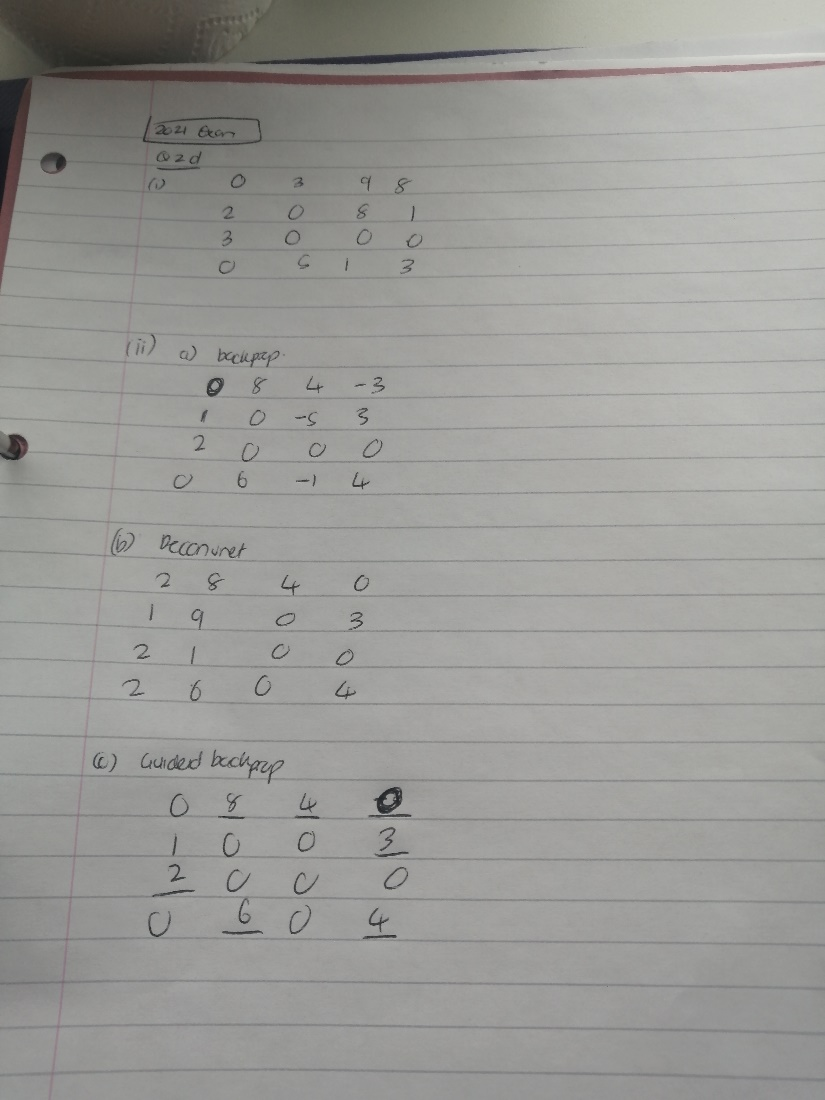 2021 Exam
Q2d
(i) 0 3 9 8
2 0 8 1
3 0 0 0
0 5 1 3
(ii) a) backprop.
0 8 4 -3
1 0 -5 3
2 0 0 0
0 6 -1 4
(b) Deconvnet
2 8 4 0
1 9 0 3
2 1 0 0
2 6 0 4
(c) Guided backprop
0 8 4 0
1 0 0 3
2 0 0 0
0 6 0 4